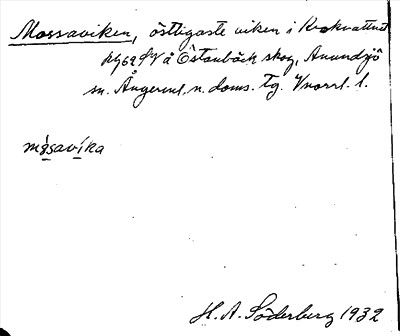 Mossaviken, östligaste viken i Krokvattnet
på Östanbäck skog, Anundsjö
sn. Ångerml. n. doms. tg. Vnorrl. l.
måsavika
H. A. Söderberg 1932